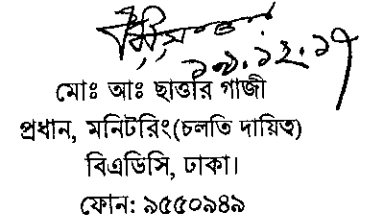 ২০.১২.১৭
মোঃ আঃ ছাত্তার গাজী
প্রধান, মনিটরিং(চলতি দায়িত্ব)
বিএডিসি, ঢাকা।
ফোন: ৯৫৫০৯৪৯